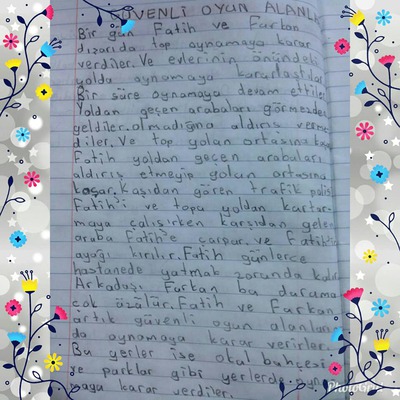 VENLİ OYUN ALANLA
Bir gün Fatih ve Furkan
dışarıda top oynamaya karar
verdiler. Ve evlerinin önündeki
yolda oynamaya kararlaştılar
Bir süre oynamaya devam ettiler
Yoldan geçen arabaları görmezden
geldiler. olmadığına aldırış verme
diler. Ve top yolun ortasına kaç
Fatih yoldan geçen arabaları
aldırış etmeyip yolun ortasına
koşar. Kaşıdan gören trafik polisi
Fatih'i ve topu yoldan kurtar-
maya çalışırken karşıdan gelen
araba Fatih'e çarpar. ve Fatih'in
ayağı kırılır. Fatih günlerce
hastanede yatmak zorunda kalır
Arkadaşı Furkan bu duruma
çok üzülür. Fatih ve Furkan
artık güvenli oyun alanların
da oynamaya karar verirler.
Bu yerler ise okul bahçesi
ve parklar gibi yerlerde oyn
maya karar verdiler.
PhotoGrid